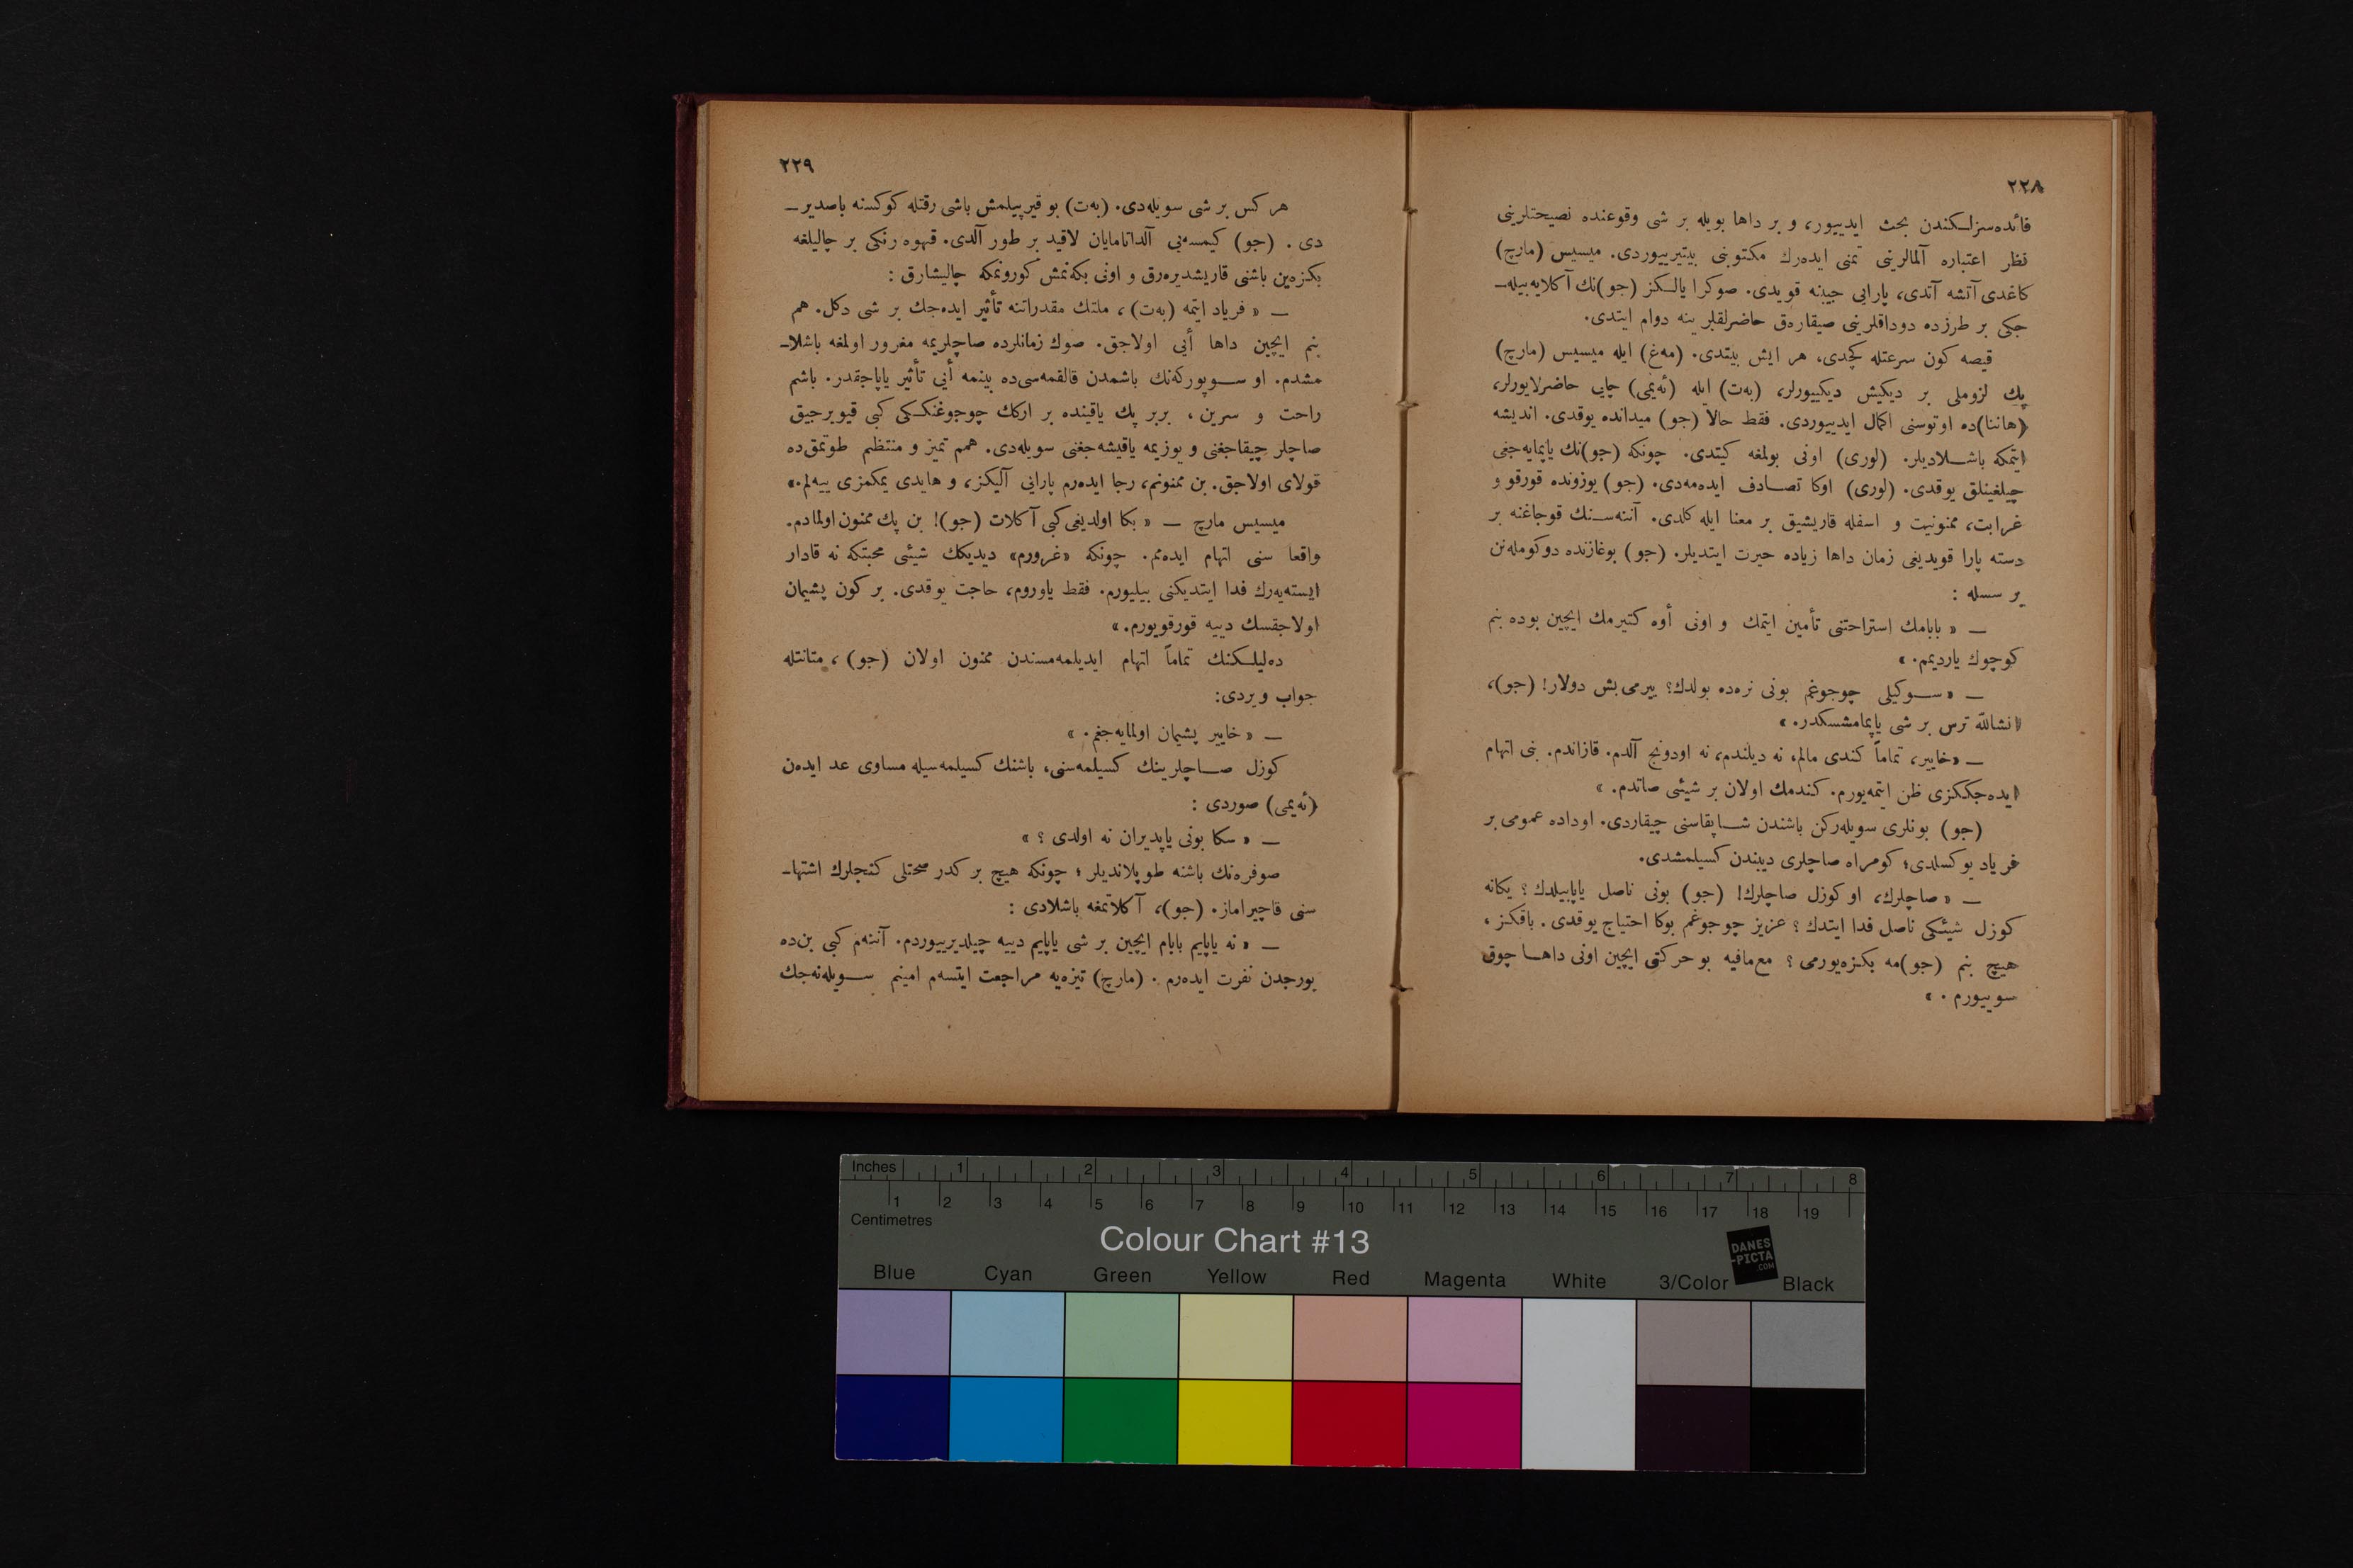 ٢٢٨
فائده‌سزلـكندن بحث ايدييور، و بر داها بويله بر شی وقوعنده نصيحتلرينی
نظر اعتباره آلمالرينی تمنی ايده‌رك مكتوبنی بيتيرييوردی. ميسيس (مارچ)
كاغدی آتشه آتدی، پارايی جيبنه قويدی. صوكرا يالـكز (جو)نك آكلايه‌بيله‌ـ
جكی بر طرزده دوداقلرينی صيقارەق حاضرلقلرينه دوام ايتدی.
قيصه كون سرعتله كچدی، هر ايش بيتدی. (مه‌غ) ايله ميسيس (مارچ)
پك لزوملی بر ديكيش ديكييورلر، (به‌ت) ايله (ئه‌يمی) چايی حاضرلايورلر،
(هاننا)ده اوتوسنی اكمال ايدييوردی. فقط حالا (جو) ميدانده يوقدی. انديشه
ايتمكه باشـلاديلر. (لوری) اونی بولمغه كيتدی. چونكه (جو)نك ياپمايه‌جغی
چيلغينلق يوقدی. (لوری) اوكا تصـادف ايده‌مه‌دی. (جو) يوزونده قورقو و
غرابت، ممنونيت و اسفله قاريشيق بر معنا ايله كلدی. آننه‌سـنك قوجاغنه بر
دسته پارا قويديغی زمان داها زياده حيرت ايتديلر. (جو) بوغازنده دوكومله‌نن
بر سسله :
— « بابامك استراحتنی تأمين ايتمك و اونی أوه كتيرمك ايچين بوده بنم
كوچوك يارديمم. »
— « سـوكيلی چوجوغم بونی نره‌ده بولدك؟ ييرمی‌بش دولار! (جو)،
انشالله ترس بر شی ياپمامشسكدر. »
— « خايير، تماماً كندی مالم، نه ديلندم، نه اودونج آلدم. قازاندم. بنی اتهام
ايده‌جككزی ظن ايتمه‌يورم. كندمك اولان بر شيئی صاتدم. »
(جو) بونلری سويله‌ركن باشندن شـاپقاسنی چيقاردی. اوداده عمومی بر
فرياد يوكسلدی؛ كومراه صاچلری ديبندن كسيلمشدی.
— « صاچلرك، او كوزل صاچلرك! (جو) بونی ناصل ياپابيلدك؟ يكانه
كوزل شيئكی ناصل فدا ايتدك؟ عزيز چوجوغم بوكا احتياج يوقدی. باقكز،
هيچ بنم (جو)مه بكزه‌يورمی؟ مع‌مافيه بو حركتی ايچين اونی داهـا چوق
سوييورم. »
٢٢٩
هر كس بر شی سويله‌دی. (به‌ت) بو قيرپيلمش باشی رقتله كوكسنه باصديرـ
دی. (جو) كيمسه‌يی آلداتامايان لاقيد بر طور آلدی. قهوه رنكی بر چاليلغه
بكزه‌ين باشنی قاريشديره‌رق و اونی بكه‌نمش كورونمكه چاليشارق :
— « فرياد ايتمه (به‌ت)، ملتك مقدراتنه تأثير ايده‌جك بر شی دكل. هم
بنم ايچين داها أيی اولاجق. صوك زمانلرده صاچلريمه مغرور اولمغه باشلاـ
مشدم. او سـوپوركه‌نك باشمدن قالقمه‌سی‌ده بينمه أيی تأثير ياپاجقدر. باشم
راحت و سرين، بربر پك ياقينده بر اركك چوجوغنكـكی كبی قيويرجيق
صاچلر چيقاجغنی و يوزيمه ياقيشه‌جغنی سويله‌دی. همم تميز و منتظم طوتمق‌ده
قولای اولاجق. بن ممنونم، رجا ايده‌رم پارايی آليكز، و هايدی يمكمزی ييه‌لم.»
ميسيس مارچ — « بكا اولديغی كبی آكلات (جو)! بن پك ممنون اولمادم.
واقعا سنی اتهام ايده‌مم. چونكه «غرورم» ديديكك شيئی محبتكه نه قادار
ايسته‌يه‌رك فدا ايتديكنی بيلييورم. فقط ياوروم، حاجت يوقدی. بر كون پشيمان
اولاجقسك دييه قورقويورم. »
ده‌ليلـكنك تماماً اتهام ايديلمه‌مسندن ممنون اولان (جو)، متانتله
جواب ويردی:
— « خايير پشيمان اولمايه‌جغم. »
كوزل صـاچلرينك كسيلمه‌سنی، باشنك كسيلمه‌سيله مساوی عد ايده‌ن
(ئه‌يمی) صوردی :
— « سكا بونی ياپديران نه اولدی ؟ »
صوفره‌نك باشنه طوپلانديلر ؛ چونكه هيچ بر كدر صحتلی كنجلرك اشتهاـ
سنی قاچيراماز. (جو)، آكلاتمغه باشلادی :
— « نه ياپايم بابام ايچين بر شی ياپايم دييه چيلديرييوردم. آننه‌م كبی بن‌ده
بورجدن نفرت ايده‌رم. (مارچ) تيزه‌يه مراجعت ايتسه‌م امينم سـويله‌نه‌جك
Inches 1 2 3 4 5 6 7 8
1 2 3 4 5 6 7 8 9 10 11 12 13 14 15 16 17 18 19
Centimetres
Colour Chart #13
DANES
-PICTA
.COM
Blue Cyan Green Yellow Red Magenta White 3/Color Black